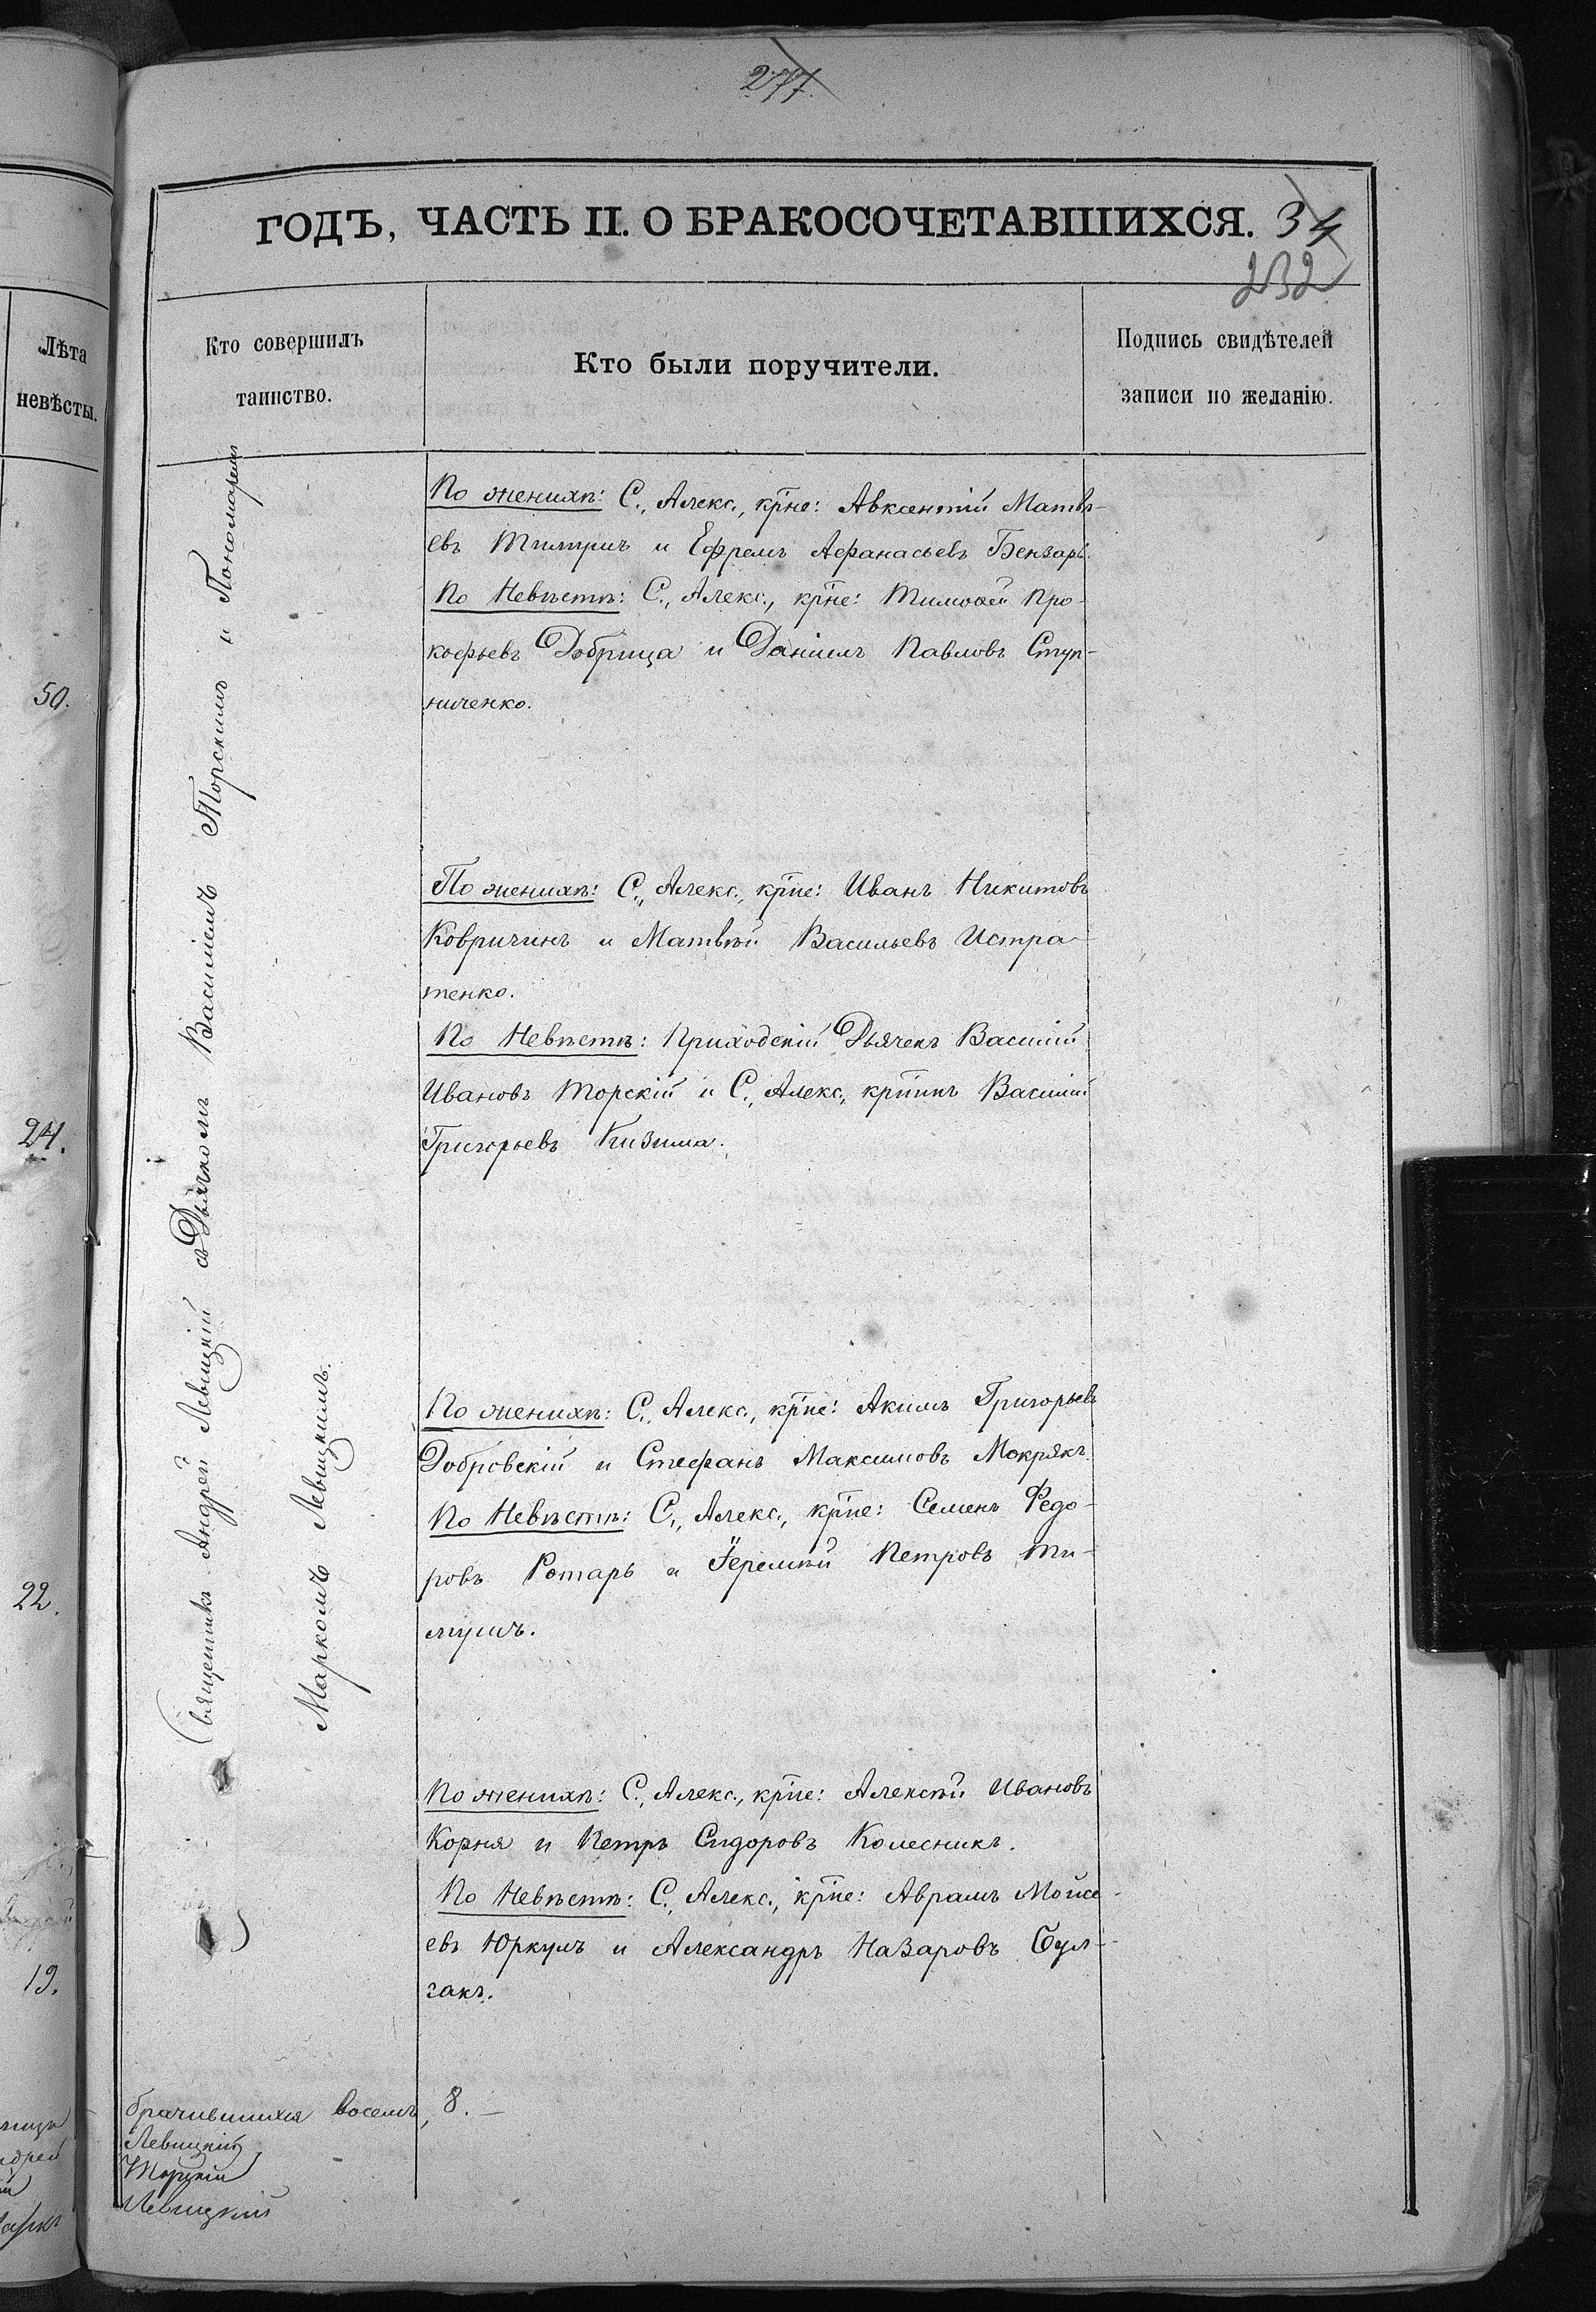 277.
ГОДЪ, ЧАСТЬ II. О БРАКОСОЧЕТАВШИХСЯ. 34
232
Лѣта
невѣсты.
Кто совершилъ
таинство.
Кто были поручители.
Подпись свидѣтелей
записи по желанію.
50.
24.
22.
19.
Священникъ Андрей Левицкій съ Дьячкомъ Василіемъ Торскимъ и Пономаремъ
Маркомъ Левицкимъ.
По женихѣ: С., Алекс., кр̃не: Авксентій Матвѣ-
евъ и Ефремъ Афанасьевъ Бензарь.
По Невѣстѣ: С., Алекс., кр̃не: Тимоѳей Про-
кофьевъ Добрица и Даніилъ Павловъ Ступ-
ниченко.
По женихѣ: С., Алекс., кр̃не: Иванъ Никитовъ
Ковричинъ и Матвѣй Васильевъ Истра-
тенко.
По Невѣстѣ: Приходскій Дьячекъ Василій
Ивановъ Торскій и С., Алекс., кр̃нинъ Василій
Григорьевъ Кизима.
По женихѣ: С., Алекс., кр̃не: Акимъ Григорьевъ
Добровскій и Стефанъ Максимовъ Мокрякъ.
По Невѣстѣ: С., Алекс., кр̃не: Семенъ Федо-
ровъ Ротарь и Іеремѣй Петровъ Ти-
мушъ.
По женихѣ: С., Алекс., кр̃не: Алексѣй Ивановъ
Корня и Петръ Сидоровъ Колесникъ.
По Невѣстѣ: С., Алекс., кр̃не: Аврамъ Мойсе-
евъ Юркулъ и Александръ Назаровъ Бул-
гакъ.
брачившихся восемь, 8. —
Левицкій
Торскій
Левицкій